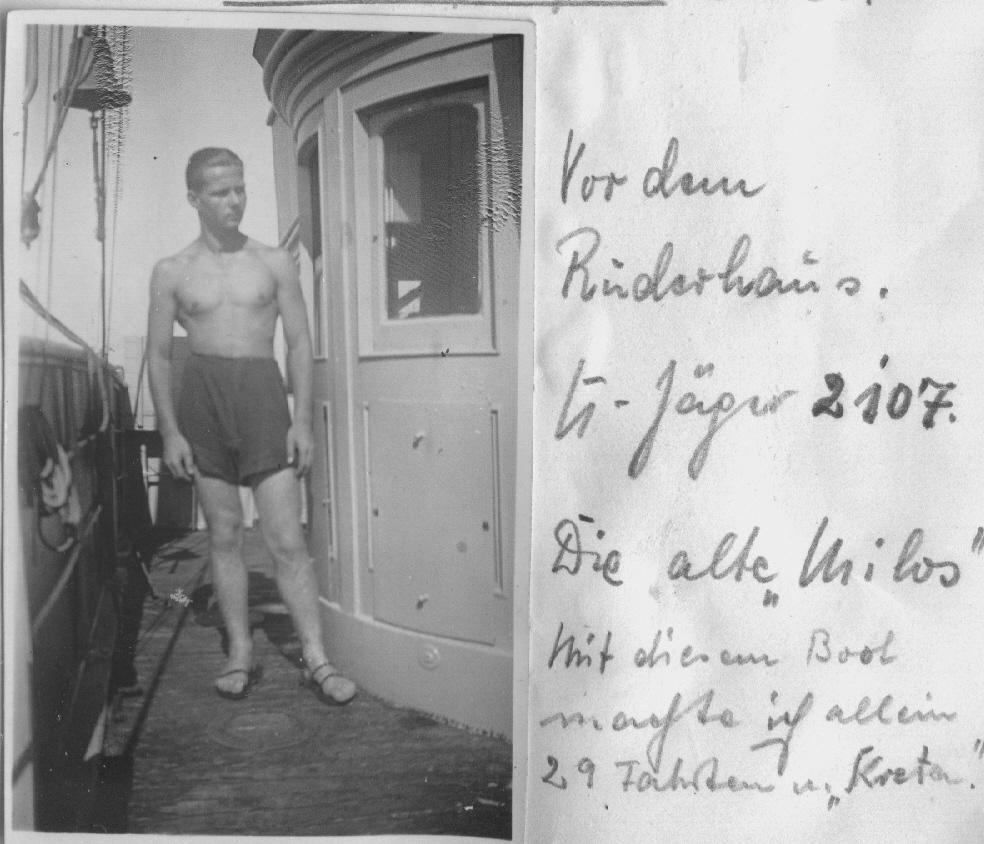 Vor dem
Ruderhaus.
U-Jäger 2107.
Die alte „Milos"
Mit diesem Boot
machte ich allein
29 Fahrten n. „Kreta."